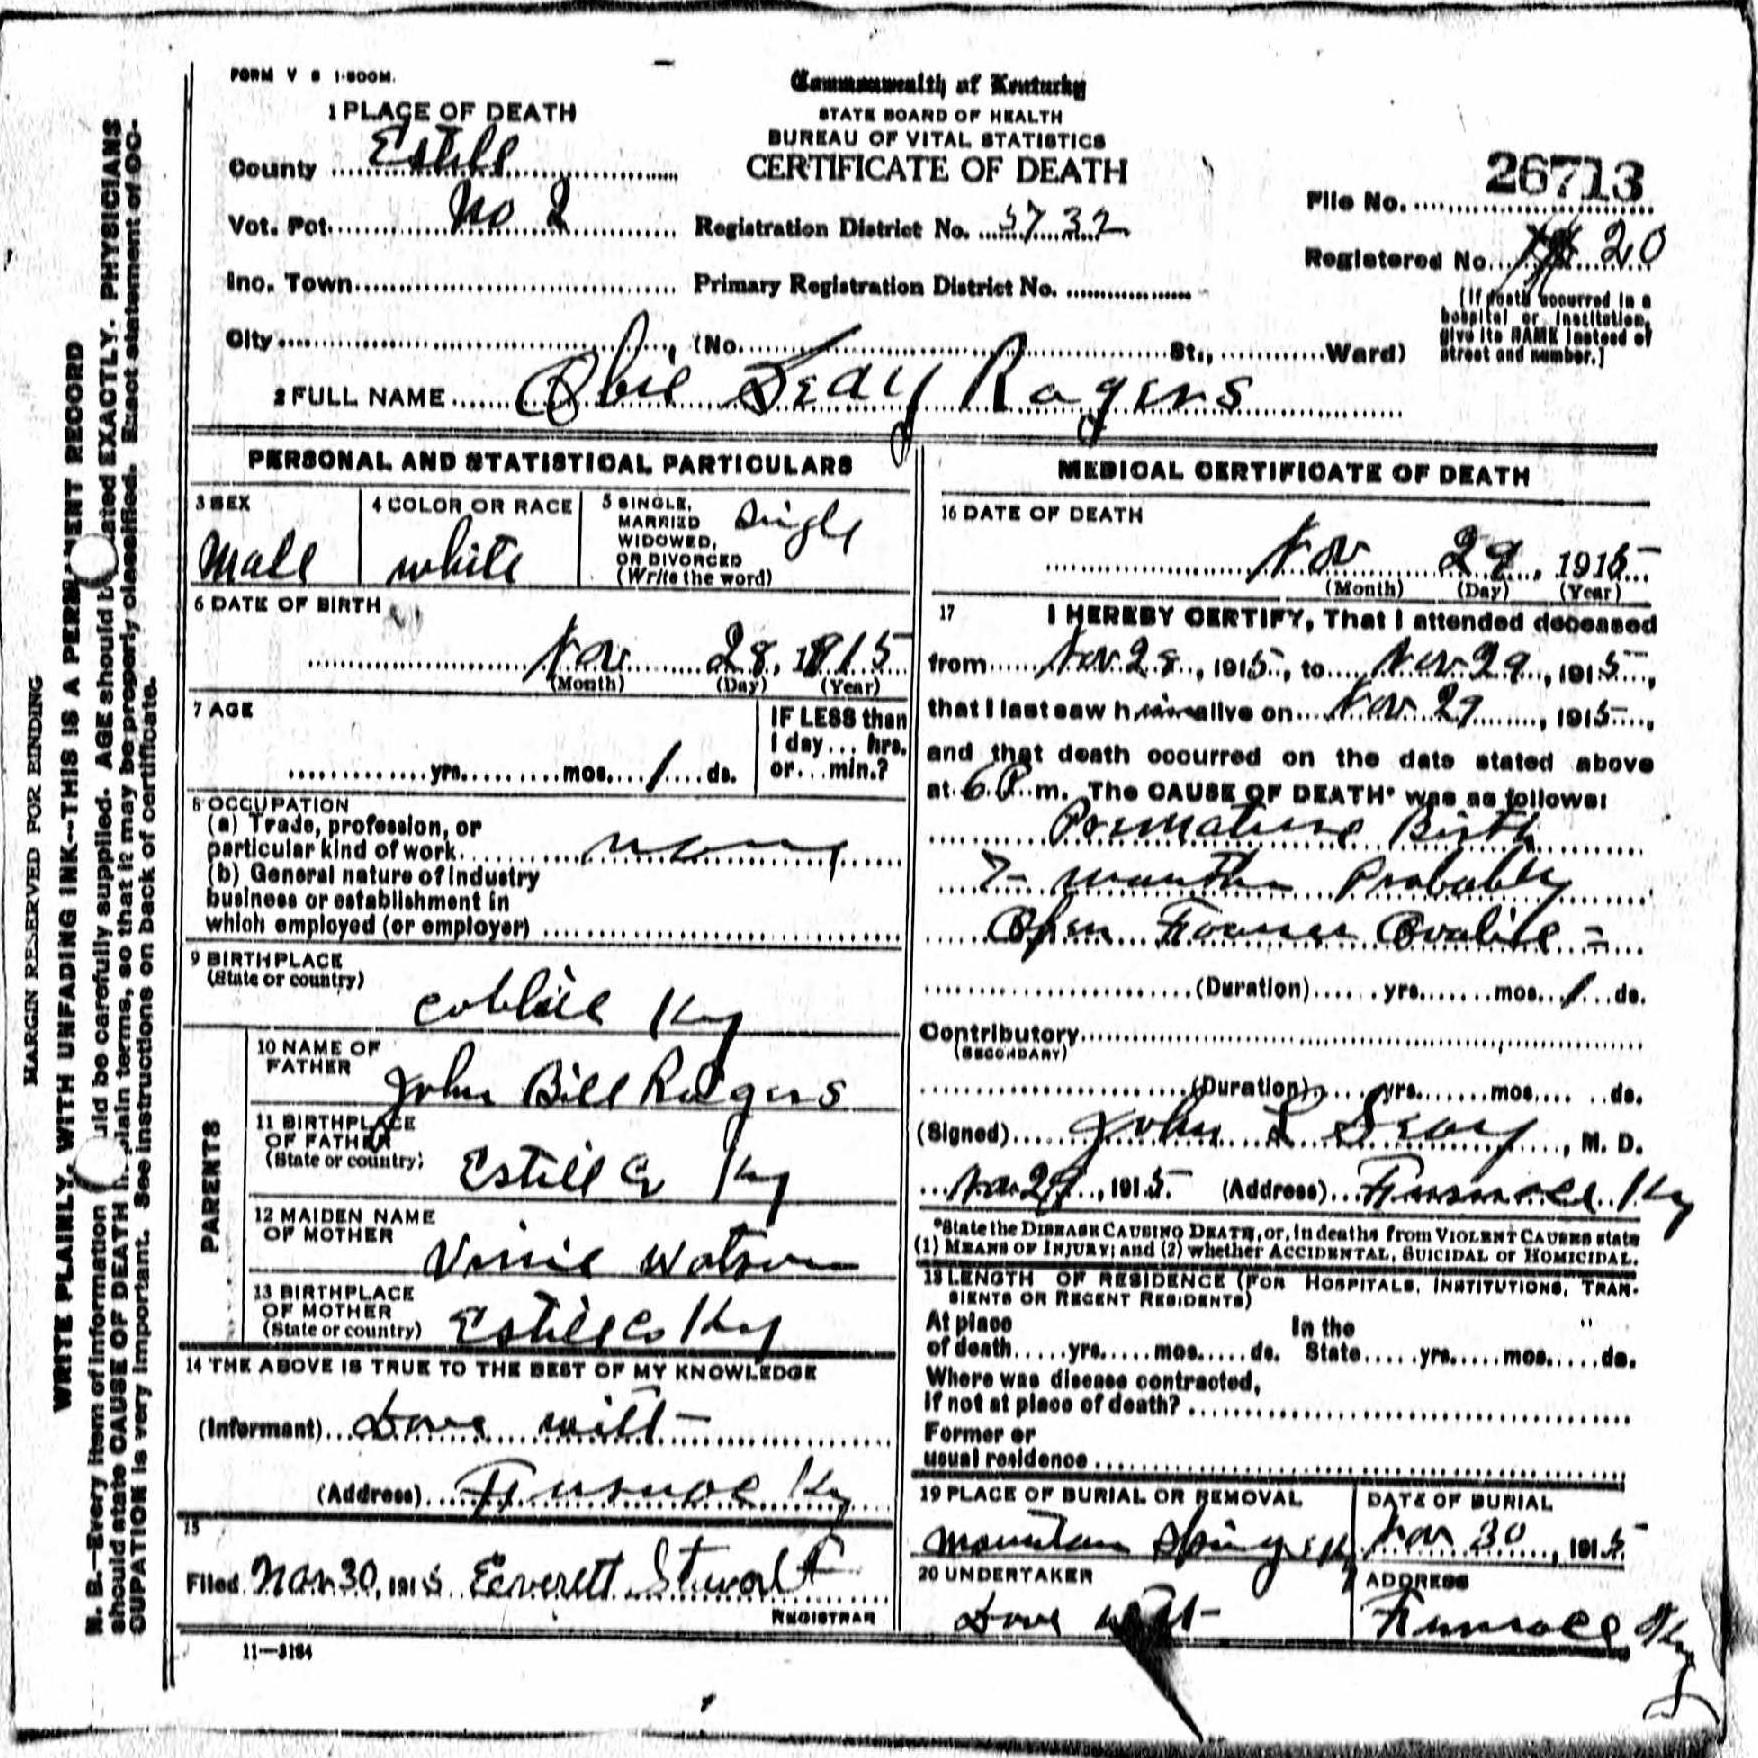 FORM V S 1-500M.
Commonwealth of Kentucky
STATE BOARD OF HEALTH
BUREAU OF VITAL STATISTICS
CERTIFICATE OF DEATH
1 PLACE OF DEATH
County Estill
Vot. Pct. No 2
Registration District No. 5732
File No. 26713
Registered No. 20
Inc. Town
Primary Registration District No.
(If death occurred in a
hospital or institution,
give its NAME instead of
street and number.]
City (No. St., Ward)
2 FULL NAME Obie Seay Rogers
PERSONAL AND STATISTICAL PARTICULARS
3 SEX
Male
4 COLOR OR RACE
white
5 SINGLE,
MARRIED
WIDOWED,
OR DIVORCED
(Write the word)
Single
6 DATE OF BIRTH
Nov 28, 1915
(Month) (Day) (Year)
7 AGE
yrs. mos. 1 ds.
IF LESS than
1 day... hrs.
or... min.?
8 OCCUPATION
(a) Trade, profession, or
particular kind of work none
(b) General nature of industry
business or establishment in
which employed (or employer)
9 BIRTHPLACE
(State or country)
Ky
PARENTS
10 NAME OF
FATHER
John Bill Rogers
11 BIRTHPLACE
OF FATHER
(State or country)
Estill Co Ky
12 MAIDEN NAME
OF MOTHER
Vinie Watson
13 BIRTHPLACE
OF MOTHER
(State or country)
Estill Co Ky
14 THE ABOVE IS TRUE TO THE BEST OF MY KNOWLEDGE
(Informant) Dove Witt
(Address) Ky
15
Filed Nov 30, 1915 Everett Stewart
REGISTRAR
11-3184
MEDICAL CERTIFICATE OF DEATH
16 DATE OF DEATH
Nov 29, 1915
(Month) (Day) (Year)
17 I HEREBY CERTIFY, That I attended deceased
from Nov 28, 1915, to Nov 29, 1915,
that I last saw him alive on Nov 29, 1915,
and that death occurred on the date stated above
at 6 P. m. The CAUSE OF DEATH* was as follows:
Premature Birth
7 months Probably
Open Ovalie
(Duration) yrs. mos. 1 ds.
Contributory
(SECONDARY)
(Duration) yrs. mos. ds.
(Signed) John L Seay, M. D.
Nov 29, 1915. (Address) Ky
*State the DISEASE CAUSING DEATH, or, in deaths from VIOLENT CAUSES state
(1) MEANS OF INJURY; and (2) whether ACCIDENTAL, SUICIDAL or HOMICIDAL.
18 LENGTH OF RESIDENCE (FOR HOSPITALS, INSTITUTIONS, TRAN-
SIENTS OR RECENT RESIDENTS)
At place In the
of death yrs. mos. ds. State yrs. mos. ds.
Where was disease contracted,
If not at place of death?
Former or
usual residence
19 PLACE OF BURIAL OR REMOVAL
Mountain Spring Ky
DATE OF BURIAL
Nov 30, 1915
20 UNDERTAKER
Dove Witt
ADDRESS
Ky
MARGIN RESERVED FOR BINDING
WRITE PLAINLY, WITH UNFADING INK--THIS IS A PERMANENT RECORD
N. B.—Every item of information should be carefully supplied. AGE should be stated EXACTLY. PHYSICIANS
should state CAUSE OF DEATH in plain terms, so that it may be properly classified. Exact statement of OC-
CUPATION is very important. See instructions on back of certificate.